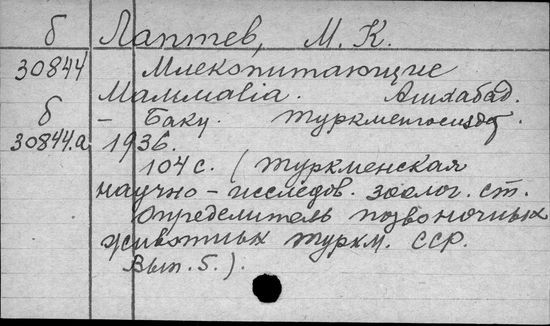 б Лаптев, М. К.
30844 Млекопитающие
Маммаlia. Ашхабад.
б - Баку. Туркменгосиздат,
30844.а 1936.
104 с. (Туркменская
научно-исследов. зоолог. ст.
Определитель позвоночных
животных Туркм. ССР.
Вып. 5.).